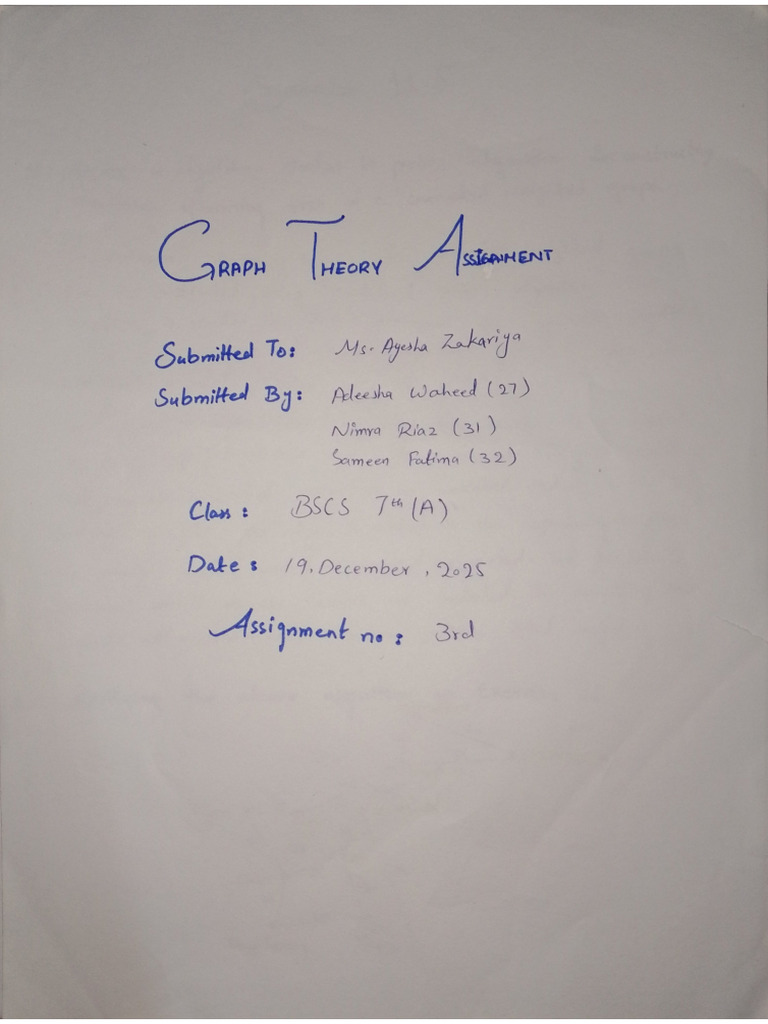 GRAPH THEORY ASSIGNMENT
Submitted To: Ms. Ayesha Zakariya
Submitted By: Adeesha Waheed (27)
Nimra Riaz (31)
Sameen Fatima (32)
Class: BSCS 7th (A)
Date: 19, December, 2025
Assignment no: 3rd